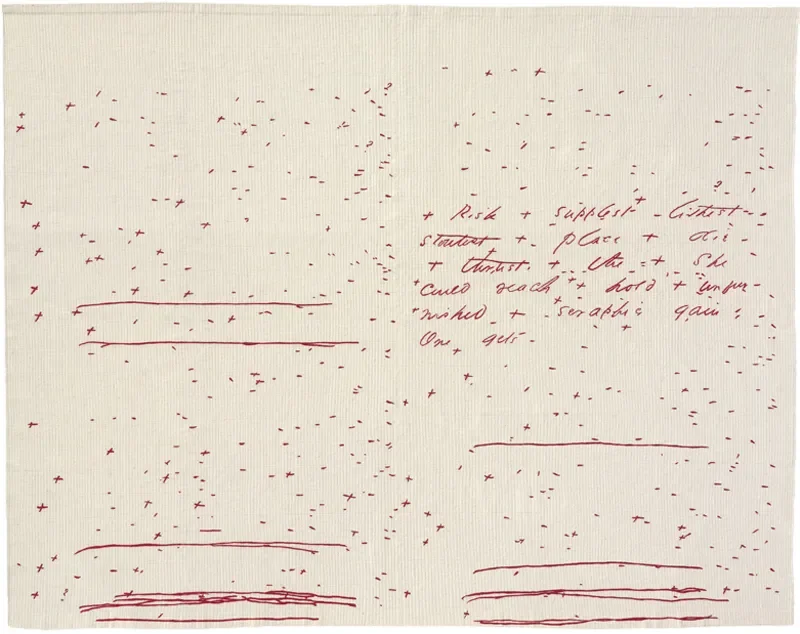 + Risk + supplest - lithest -
stoutest + place + die -
+ thrust. + the + She
could reach + hold + unfur-
nished + seraphic gain :
One gets -